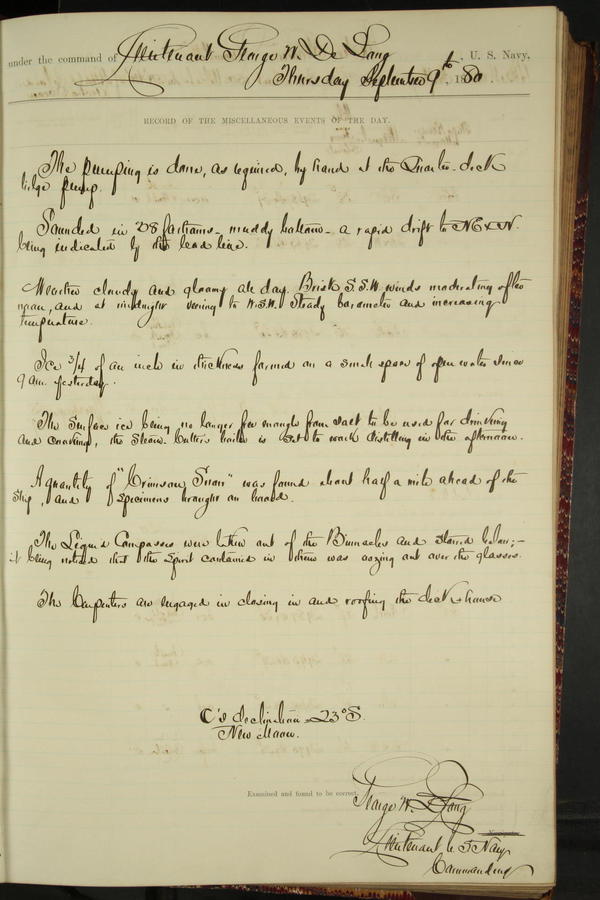 under the command of Lieutenant George W. De Long, U. S. Navy,
Thursday September 9th, 1880.
RECORD OF THE MISCELLANEOUS EVENTS OF THE DAY.
The pumping is done, as required, by hand at the Quarter-deck
bilge pump.
Sounded in 28 fathoms - muddy bottom - a rapid drift to
being indicated by the lead line.
Weather cloudy and gloomy all day. Brisk S.S.W. winds moderating after
noon, and at midnight veering to W.S.W. Steady barometer and increasing
temperature.
Ice 3/4 of an inch in thickness formed on a small space of open water since
9 a.m. yesterday.
The surface ice being no longer free enough from salt to be used for drinking
and cooking, the Steam-Cutter's boiler is set to work distilling in the afternoon.
A quantity of "Crimson Snow" was found about half a mile ahead of the
Ship, and specimens brought on board.
The Liquid Compasses were taken out of the Binnacles and stored below; -
it being noticed that the Spirit contained in them was oozing out over the glasses.
The Carpenters are engaged in closing in and roofing the deck-house
☾'s declination 23° S.
New Moon.
Examined and found to be correct.
George W. De Long
Lieutenant U. S. Navy
Commanding